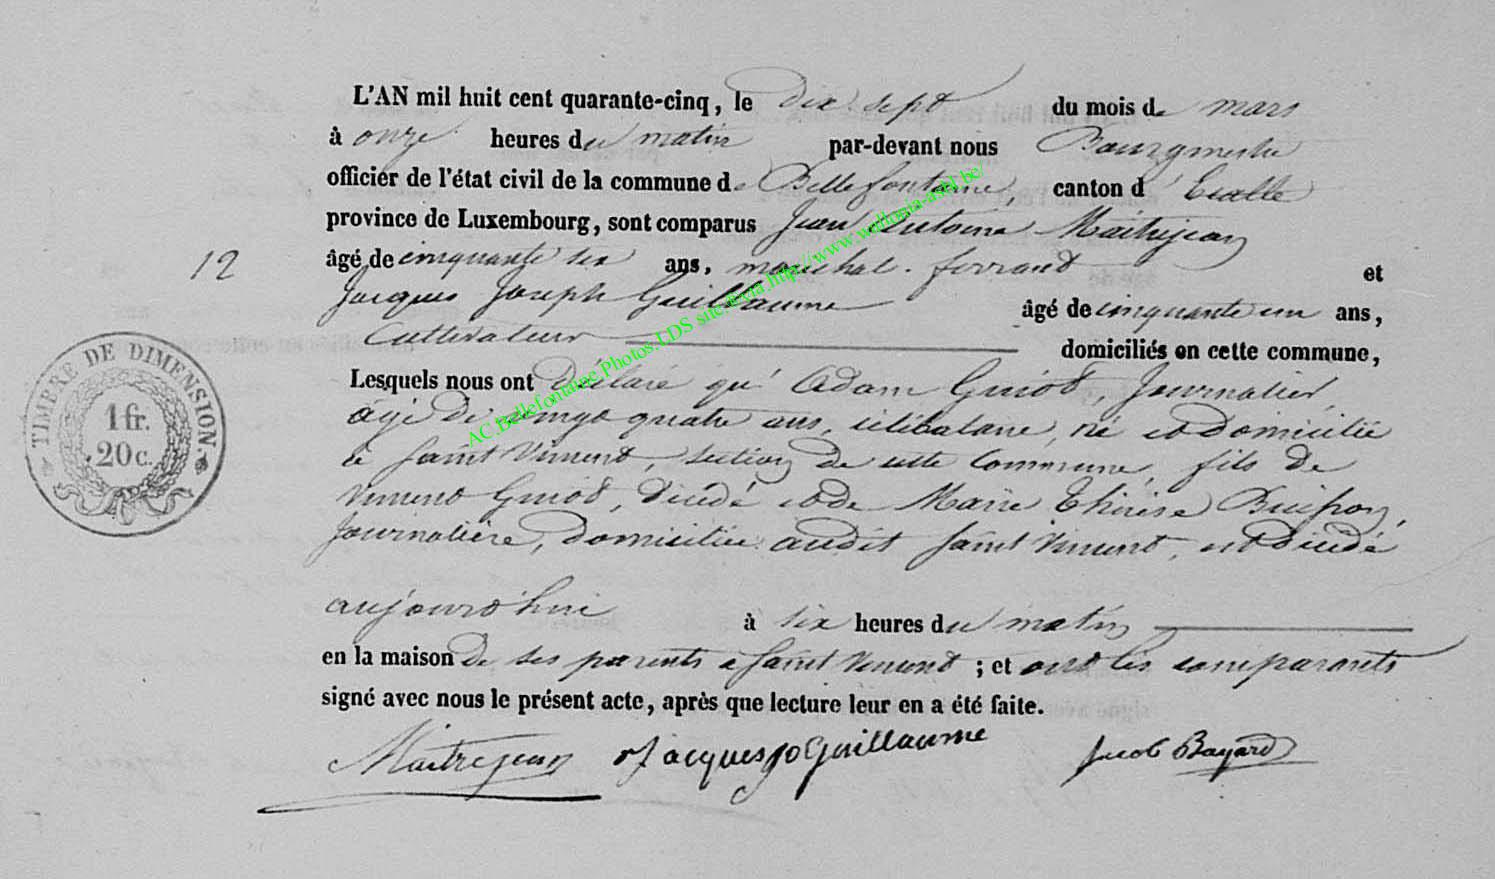 L'AN mil huit cent quarante-cinq, le dix sept du mois de mars
à onze heures du matin par-devant nous Bourgmestre
officier de l'état civil de la commune de Bellefontaine, canton d'Etalle
province de Luxembourg, sont comparus Jean Antoine Maitrejean
12
âgé de cinquante six ans, maréchal-ferrant et
Jacques Joseph Guillaume âgé de cinquante un ans,
Cultivateur domiciliés en cette commune,
Lesquels nous ont déclaré qu'Adam Guiot, Journalier,
âgé de vingt quatre ans, célibataire, né et domicilié
à Saint Vincent, section de cette Commune, fils de
Vincent Guiot, décédé et de Marie Thérèse Buisson,
Journalière, domiciliée audit Saint Vincent, est décédé
aujourd'hui à six heures du matin
en la maison de ses parents à Saint Vincent ; et ont les comparants
signé avec nous le présent acte, après que lecture leur en a été faite.
Maitrejean Jacques Jo Guillaume Jacob Bayard
TIMBRE DE DIMENSION
1 fr.
20 c.
AC.Bellefontaine.Photos.LDS site @via http://www.wallonia-asbl.be/